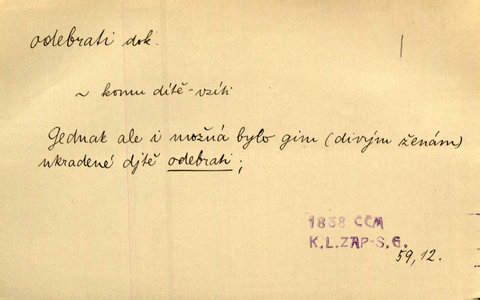 odebrati dok.
~ komu dítě - vzíti
Gednak ale i možná bylo gim (divým ženám)
ukradené djtě odebrati;
1838 ČČM
K.L.ZAP-S. G.
59,12.